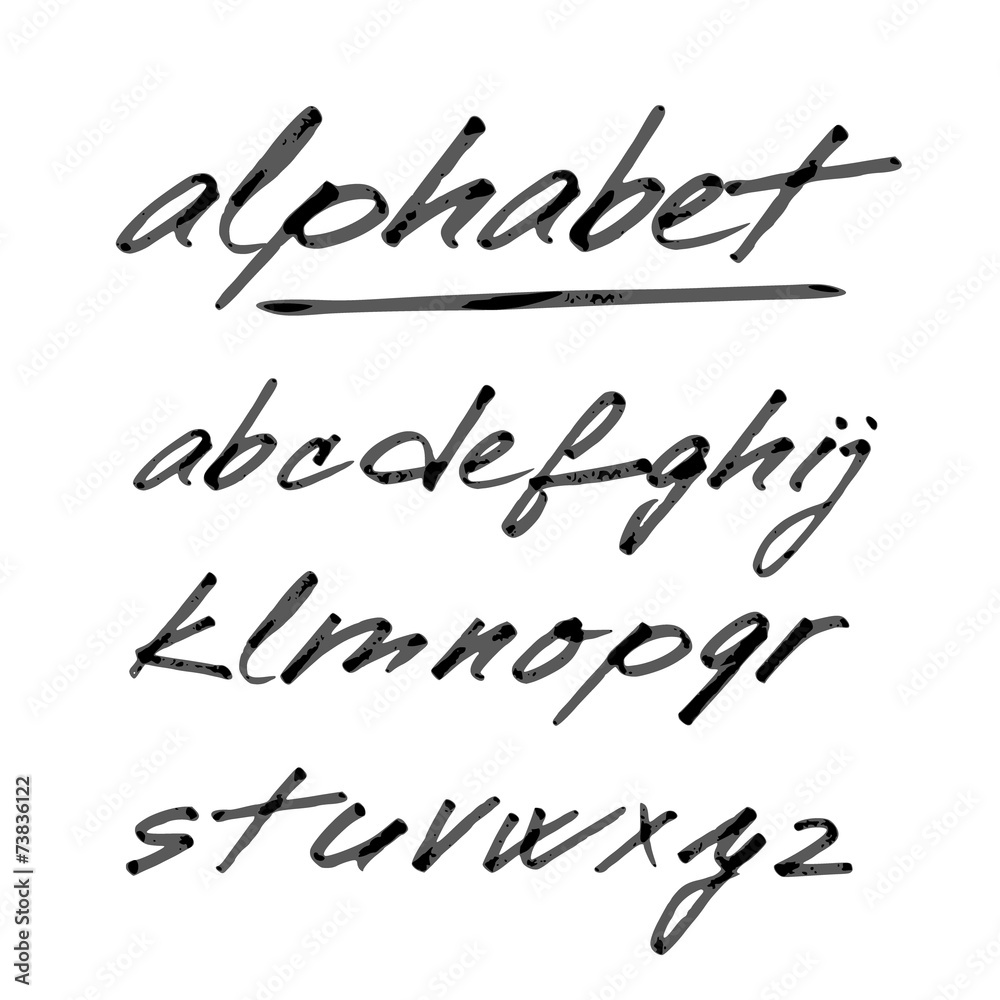 alphabet
abcdefghij
klmnopqr
stuvwxyz
Adobe Stock | #73836122